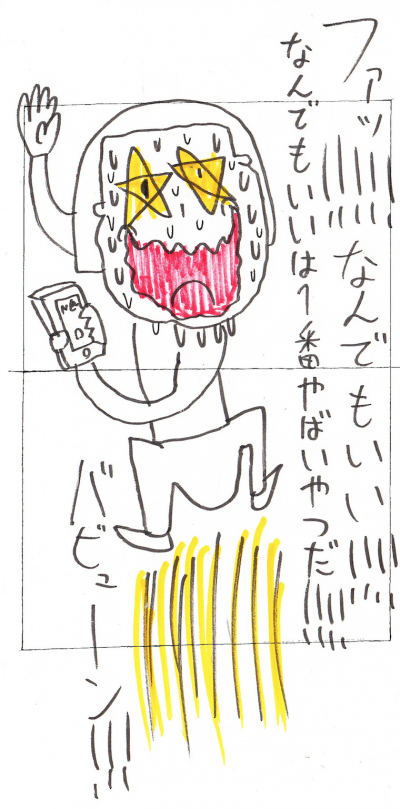 ファッ!!!!!!
なんでもいい!!!!!
なんでもいいは1番やばいやつだ!!!!!
バビューン!!!!